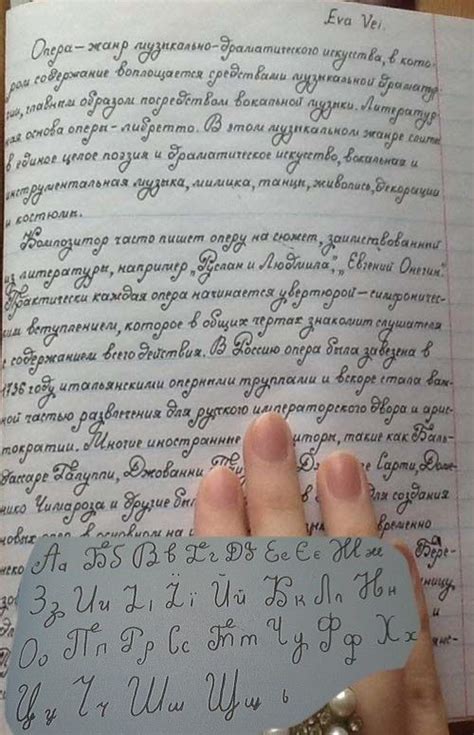 Eva Vei.
Опера – жанр музыкально-драматического искусства, в кото-
ром содержание воплощается средствами музыкальной драматур
гии, главным образом посредством вокальной музыки. Литератур
ная основа оперы – либретто. В этом музыкальном жанре слиты
в единое целое поэзия и драматическое искусство, вокальная и
инструментальная музыка, мимика, танцы, живопись, декорации
и костюмы.
Композитор часто пишет оперу на сюжет, заимствованный
из литературы, например „Руслан и Людмила", „Евгений Онегин".
Практически каждая опера начинается увертюрой – симфоничес-
ким вступлением, которое в общих чертах знакомит слушателя
с содержанием всего действия. В Россию опера была завезена в
1736 году итальянскими оперными труппами и вскоре стала важ-
ной частью развлечения для русского императорского двора и арис-
тократии. Многие иностранные торы, такие как Баль-
дассаре Галуппи, Джованни Сарти, Доме-
нико Чимароза и другие для создания
новых опер, в основном на временно
Бере-
Аа Бб Вв Гг Дд Ее Єє Жж
Зз Ии Іі Її Йй Кк Лл Нн
Оо Пп Рр Сс Тт Уу Фф Хх
Цц Чч Шш Щщ ь